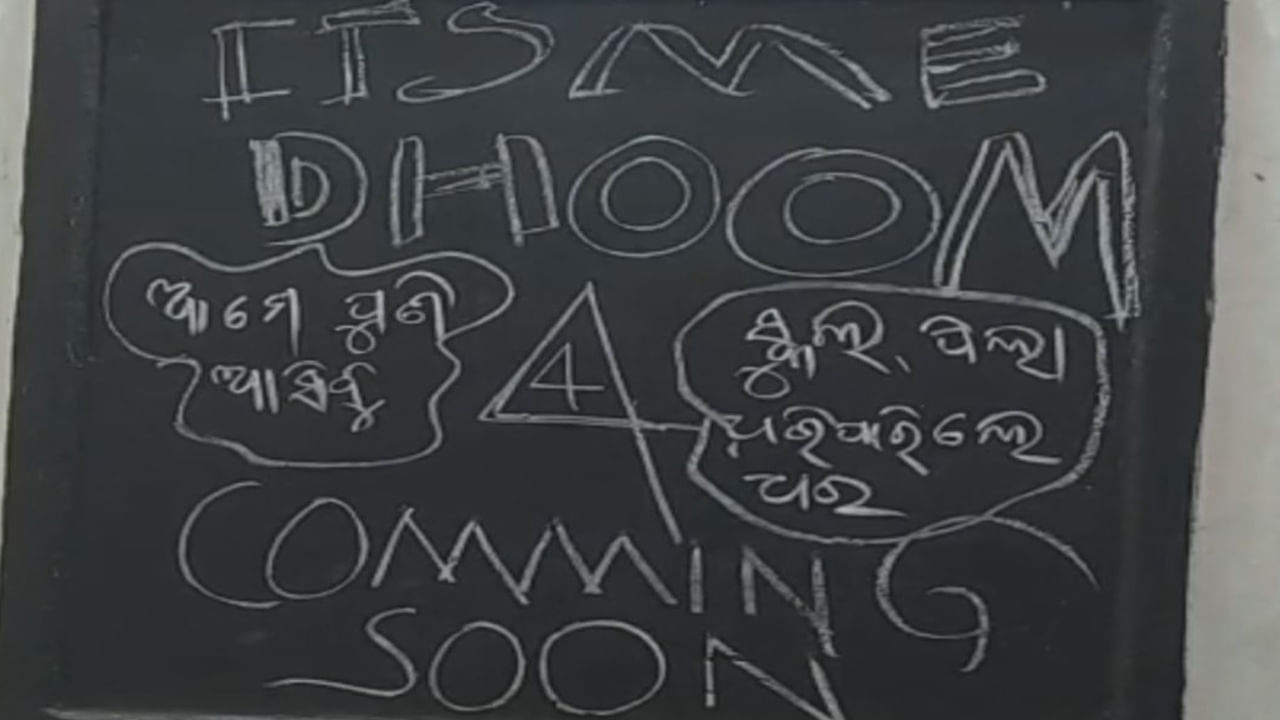 ITS ME
DHOOM
ଆମେ ପୁଣି
ଆସିବୁ
4
ସ୍କୁଲ, ପିଲା
ଧରିପାରିଲେ
ଧର
COMMING
SOON